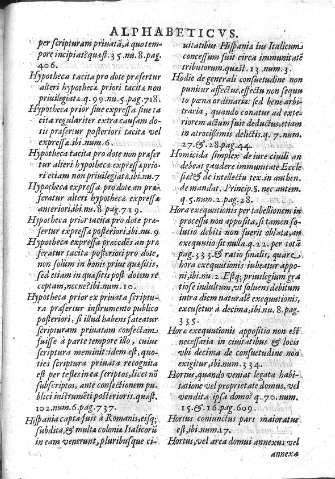 ALPHABETICVS.
per scripturam priuatã, à quo tem-
pore incipiat quæst. 35. nu. 8. pag.
406.
Hypotheca tacita pro dote præfertur
alteri hypothecæ priori tacita non
priuilegiatæ q. 99. nu. 5. pag. 718.
Hypotheca prior siue expressa siue ta
cita regulariter extra causam do-
tis præfertur posteriori tacitæ vel
expressæ. ibi num. 6.
Hypotheca tacita pro dote non præfer
tur alteri hypothecæ expressæ prio-
ri etiam non priuilegiatæ, ibi. nu. 7
Hypotheca expressa pro dote an præ-
feratur alteri hypothecæ expressæ
anteriori ibi. nu. 8. pag. 719.
Hypotheca prior tacita pro dote præ-
fertur expressæ posteriori, ibi nu. 9
Hypotheca expressa præcedẽs an præ
feratur tacitæ posteriori pro dote,
non solum in bonis prius quæsitis,
sed etiam in quæsitis post dotem re
ceptam, nec ne ibi num. 10.
Hypotheca prior ex priuata scriptu-
ra præfertur instrumento publico
posteriori, si illud habens fateatur
scripturam priuatam confectam
fuisse à parte tempore illo, cuius
scriptura meminit: idem est, quo-
ties scriptura priuata recognita
est per testes in ea scriptos, licet nõ
subscriptos, ante confectionem pu-
blici instrumẽti posterioris. quæst.
102. num. 6. pag. 737.
Hispania capta fuit à Romanis, eisq;
subdita, & multæ coloniæ Italicorũ
in eam venerunt, pluribusque ci-
uitatibus Hispania ius Italicum
concessum fuit circa immunitatẽ
tributorum. quæst. 13. num. 3.
Hodie de generali consuetudine non
punitur affectus, effectu non sequu
to pœna ordinaria: sed bene arbi-
traria, quando conatur ad vlte-
riorem actum fuit deductus, etiam
in atrocissimis delictis. q. 7. num.
27. & 28. pag. 44.
Homicida simplex de iure ciuili an
debeat gaudere immunitate Eccle-
siæ & de intellectu tex. in authen.
de mandat. Princip. §. nec autem.
q. 5. num. 2. pag. 28.
Hora exequutionis per tabellionem in
processu non apposita, si tamen so-
lutio debiti non fuerit oblata, an
exequutio sit nulla. q. 22. per totã
pag. 335. & ratio finalis, quare
hora exequutionis iubeatur appo-
ni, ibi num. 2. Est q; priuilegium gra
tiose indultum, vt soluens debitum
intra diem naturalẽ exequutionis,
excusetur à decima, ibi nu. 8. pag.
335.
Horæ exequutionis appositio non est
necessaria in ciuitatibus & locis
vbi decima de consuetudine non
exigitur, ibi num. 334.
Hortus, quando veniat legata habi-
tatione vel proprietate domus, vel
vendita ipsa domo? q. 70. num.
15. & 16. pag. 609
Hortus coniunctus pars maioratus
est, ibi num. 17.
Hortus, vel area domui annexa vel
annexa